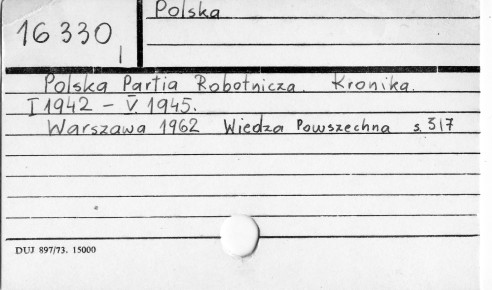 Polska
16 330 I
Polska Partia Robotnicza. Kronika.
I 1942 – V. 1945.
Warszawa 1962 Wiedza Powszechna s. 317
DUJ 897/73. 15000